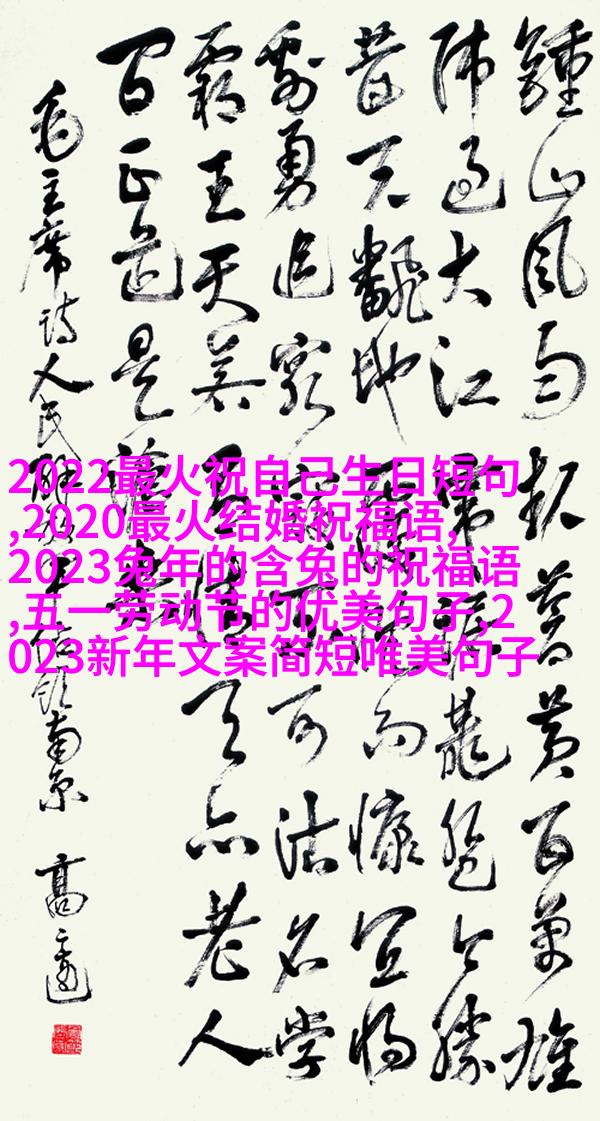 鍾山風雨起蒼黃百萬雄
師過大江虎踞龍盤今勝
昔天翻地覆慨而慷宜將
剩勇追窮寇不可沽名學
霸王天若有情天亦老人
間正道是滄桑
毛主席詩人民解放軍佔領南京 高
2022最火祝自己生日短句
,2020最火结婚祝福语,
2023兔年的含兔的祝福语
,五一劳动节的优美句子,2
023新年文案简短唯美句子